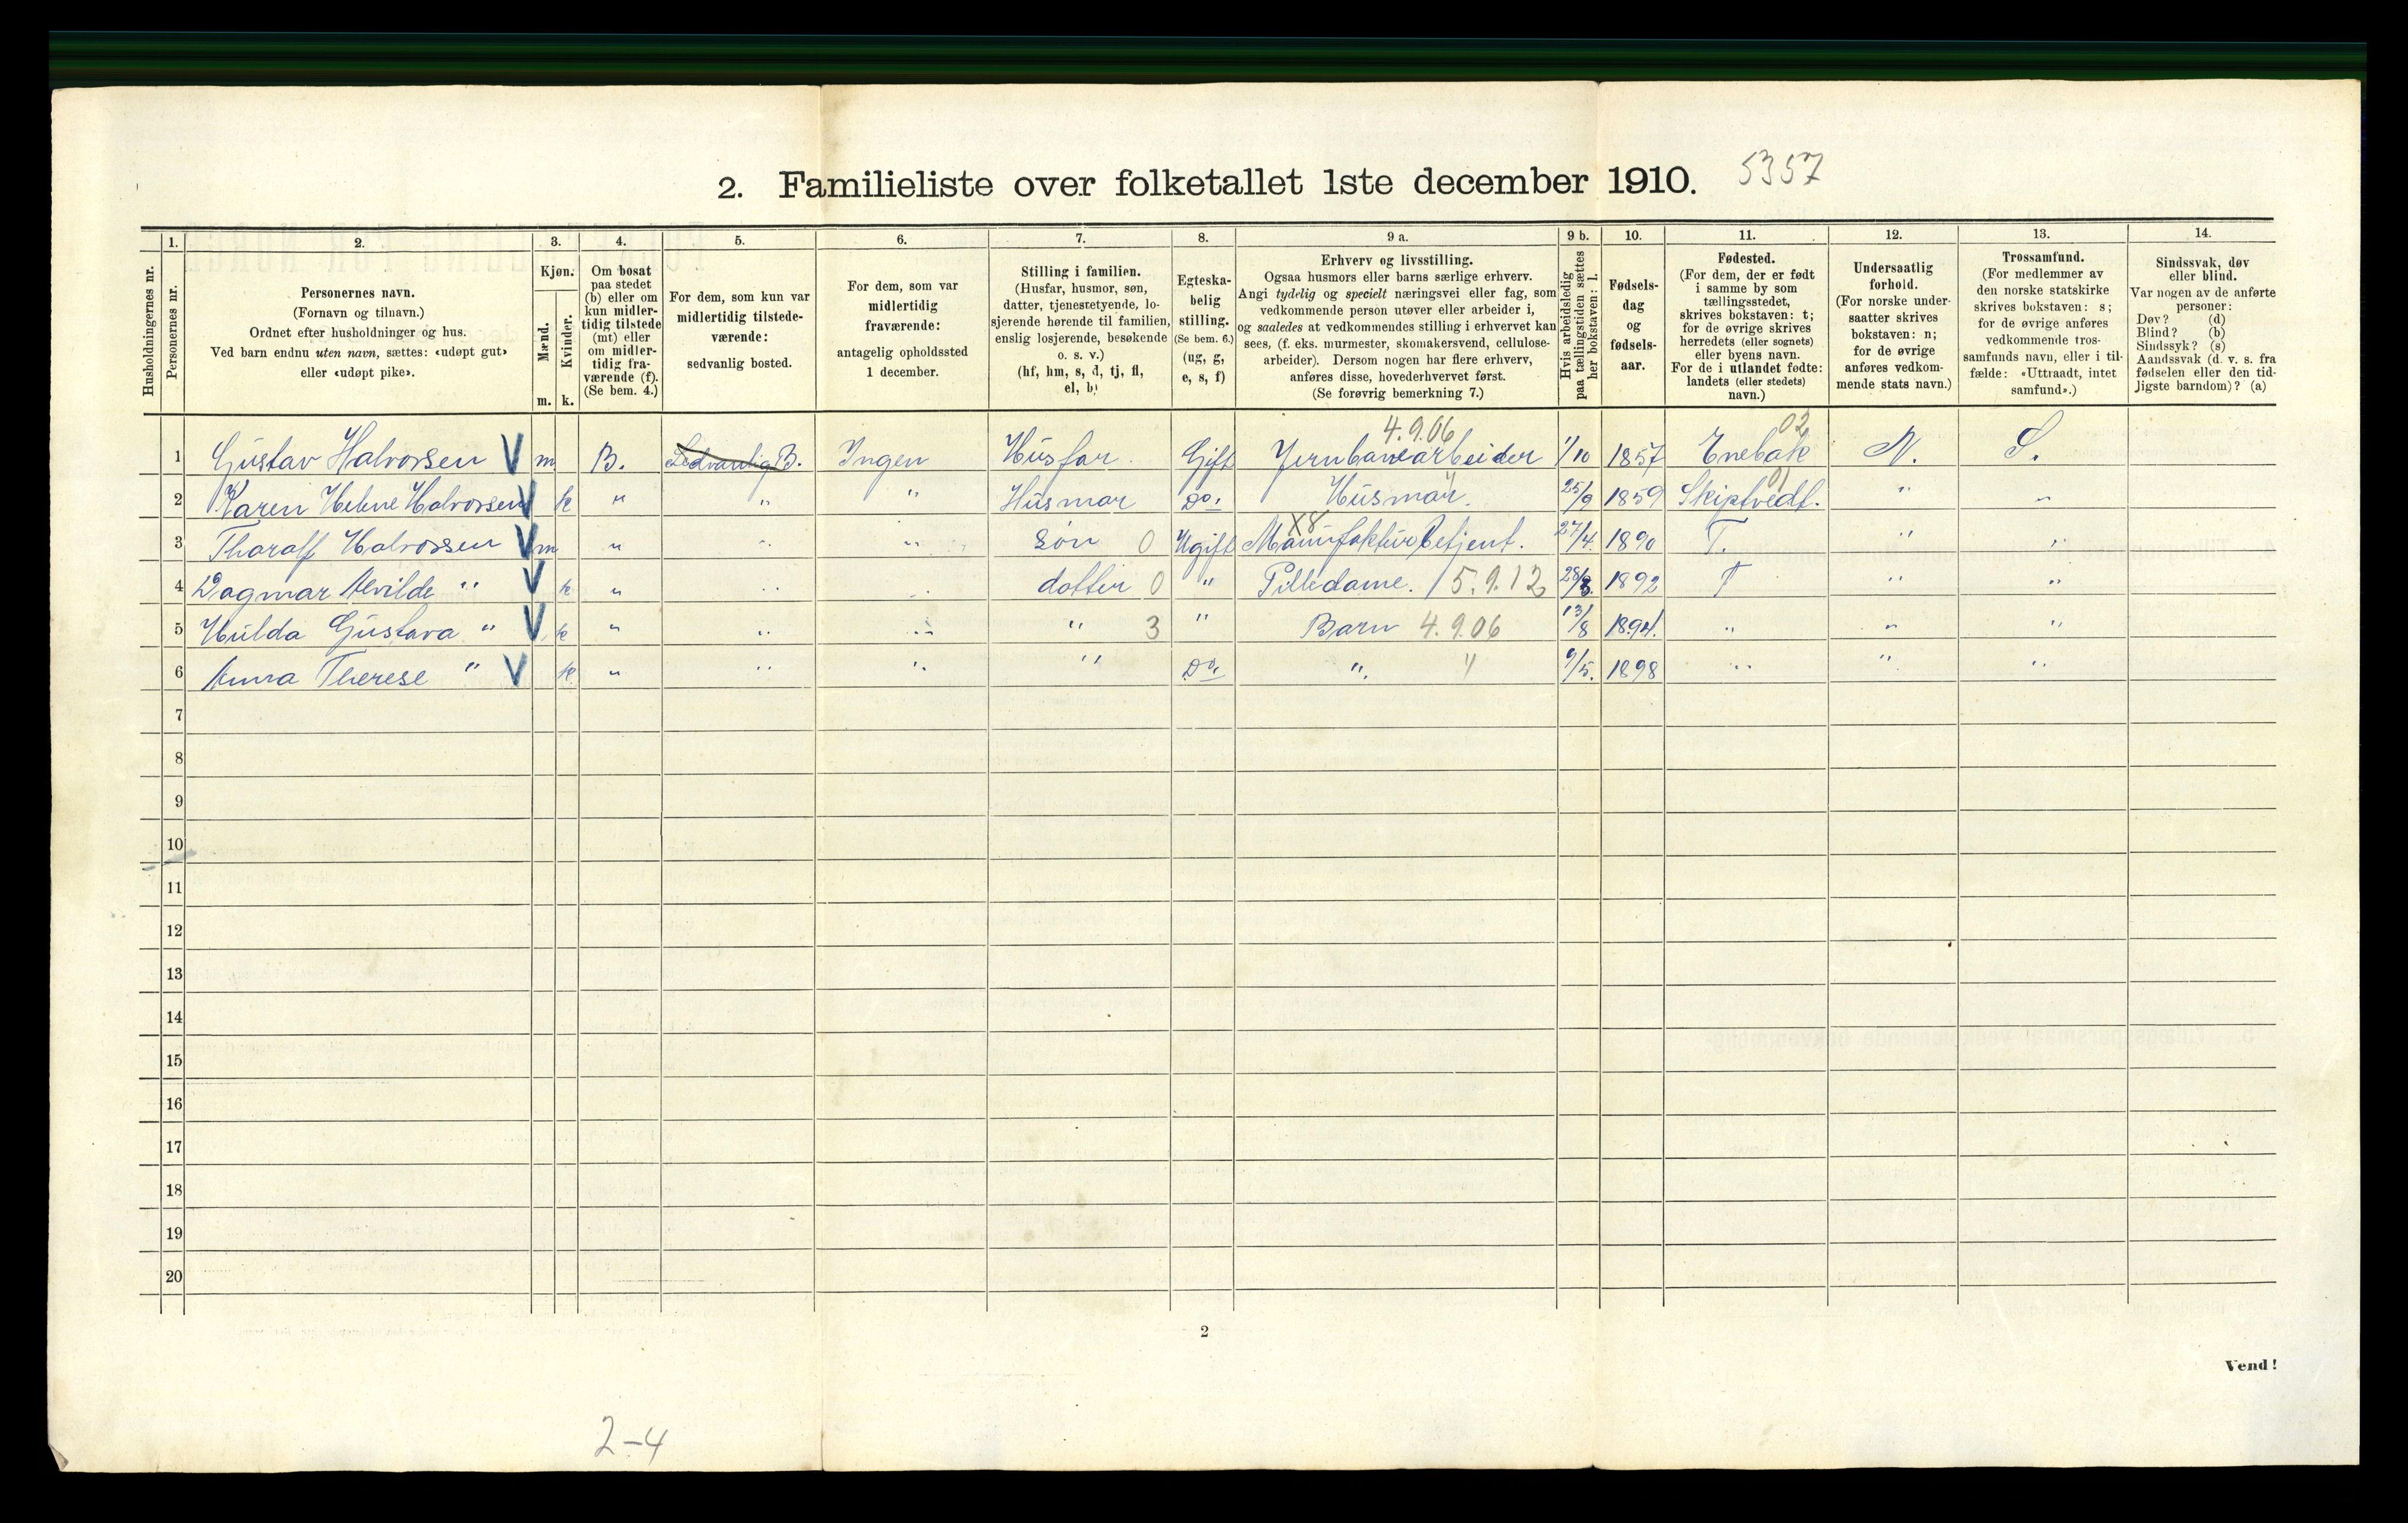 2. Familieliste over folketallet 1ste december 1910. 5357
Husholdningernes nr.
1. Personernes nr.
2. Personernes navn.
(Fornavn og tilnavn.)
Ordnet efter husholdninger og hus.
Ved barn endnu uten navn, sættes: «udøpt gut»
eller «udøpt pike».
3. Kjøn.
Mænd. m.
Kvinder. k.
4. Om bosat
paa stedet
(b) eller om
kun midler-
tidig tilstede
(mt) eller
om midler-
tidig fra-
værende (f).
(Se bem. 4.)
5. For dem, som kun var
midlertidig tilstede-
værende:
sedvanlig bosted.
6. For dem, som var
midlertidig
fraværende:
antagelig opholdssted
1 december.
7. Stilling i familien.
(Husfar, husmor, søn,
datter, tjenestetyende, lo-
sjerende hørende til familien,
enslig losjerende, besøkende
o. s. v.)
(hf, hm, s, d, tj, fl,
el, b)
8. Egteska-
belig
stilling.
(Se bem. 6.)
(ug, g,
e, s, f)
9 a. Erhverv og livsstilling.
Ogsaa husmors eller barns særlige erhverv.
Angi tydelig og specielt næringsvei eller fag, som
vedkommende person utøver eller arbeider i,
og saaledes at vedkommendes stilling i erhvervet kan
sees, (f. eks. murmester, skomakersvend, cellulose-
arbeider). Dersom nogen har flere erhverv,
anføres disse, hovederhvervet først.
(Se forøvrig bemerkning 7.)
9 b. Hvis arbeidsledig
paa tællingstiden sættes
her bokstaven: l.
10. Fødsels-
dag
og
fødsels-
aar.
11. Fødested.
(For dem, der er født
i samme by som
tællingsstedet,
skrives bokstaven: t;
for de øvrige skrives
herredets (eller sognets)
eller byens navn.
For de i utlandet fødte:
landets (eller stedets)
navn.)
12. Undersaatlig
forhold.
(For norske under-
saatter skrives
bokstaven: n;
for de øvrige
anføres vedkom-
mende stats navn.)
13. Trossamfund.
(For medlemmer av
den norske statskirke
skrives bokstaven: s;
for de øvrige anføres
vedkommende tros-
samfunds navn, eller i til-
fælde: «Uttraadt, intet
samfund».)
14. Sindssvak, døv
eller blind.
Var nogen av de anførte
personer:
Døv? (d)
Blind? (b)
Sindssyk? (s)
Aandssvak (d. v. s. fra
fødselen eller den tid-
ligste barndom)? (a)
4.9.06 02
1 Gustav Halvorsen V m B. Sedvanlig B. Ingen Husfar Gift Jernbanearbeider 1/10 1857 Enebak N. S.
01
2 Karen Helene Halvorsen V k " " " Husmor Do. Husmor. 25/9 1859 Skiptvedt. " "
X8
3 Tharalf Halvorsen V m " " " Søn 0 Ugift Manufaktur Betjent. 27/4. 1890 T. " "
4 Dagmar Alvilde " V k " " " dotter 0 " Pilledame. 5.9.12 28/3. 1892 T " "
5 Hulda Gustava " V k " " " " 3 " Barn 4.9.06 13/8 1894. " " "
6 Anna Therese " V k " " " " Do. " " 9/5. 1898 " " "
7
8
9
10
11
12
13
14
15
16
17
18
19
20
2
Vend!
2-4